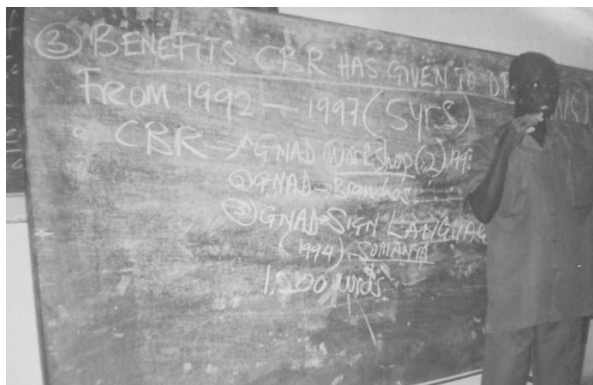 ③ BENEFITS CBR HAS GIVEN TO
FROM 1992 — 1997 (5yrs)
CBR → GNAD Workshop (2)
① GNAD - Branches
② GNAD - SIGN LANGUAG
(1994) - SOMANYA
1,500 words